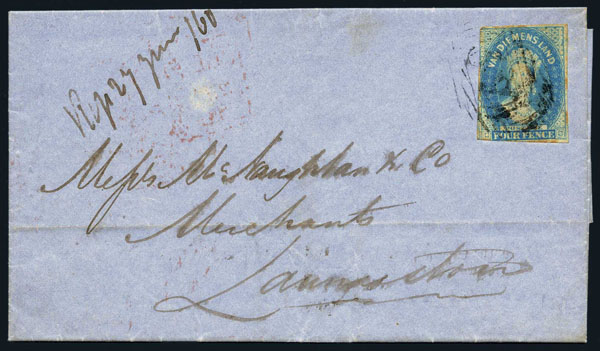 VAN DIEMENS LAND
FOUR PENCE
27 June /60
Messrs McNaughtan & Co
Merchants
Launceston